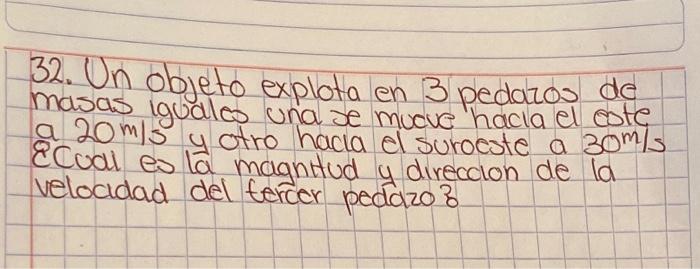 32. Un objeto explota en 3 pedazos de
masas iguales una se mueve hacia el este
a 20m/s y otro hacia el suroeste a 30m/s
¿Cual es la magnitud y direccion de la
velocidad del tercer pedazo?